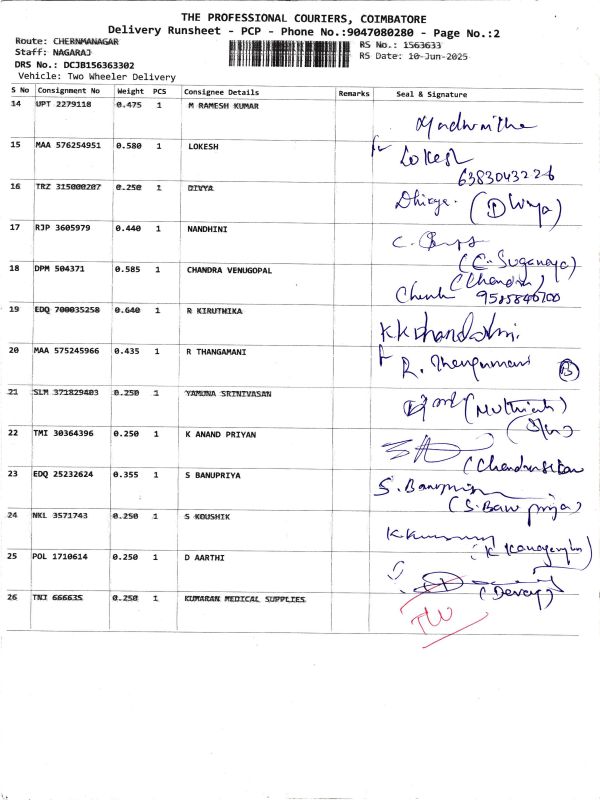 THE PROFESSIONAL COURIERS, COIMBATORE
Delivery Runsheet - PCP - Phone No.:9047080280 - Page No.:2
Route: CHERNMANAGAR
RS No.: 1563633
Staff: NAGARAJ
RS Date: 10-Jun-2025
DRS No.: DCJB156363302
Vehicle: Two Wheeler Delivery
S No Consignment No Weight PCS Consignee Details Remarks Seal & Signature
14 UPT 2279118 0.475 1 M RAMESH KUMAR
15 MAA 576254951 0.580 1 LOKESH Lokesh
6383043226
16 TRZ 315000207 0.250 1 DIVYA
17 RJP 3605979 0.440 1 NANDHINI
(C. Suganaya)
18 DPM 504371 0.585 1 CHANDRA VENUGOPAL (Chandra)
9585846700
19 EDQ 700035258 0.640 1 R KIRUTHIKA
20 MAA 575245966 0.435 1 R THANGAMANI R. Thangamani
21 SLM 371829403 0.250 1 YAMUNA SRINIVASAN (Muthiah)
22 TMI 30364396 0.250 1 K ANAND PRIYAN
23 EDQ 25232624 0.355 1 S BANUPRIYA S. Banupriya
(S. Banu priya)
24 NKL 3571743 0.250 1 S KOUSHIK
25 POL 1710614 0.250 1 D AARTHI
26 TNJ 666635 0.250 1 KUMARAN MEDICAL SUPPLIES